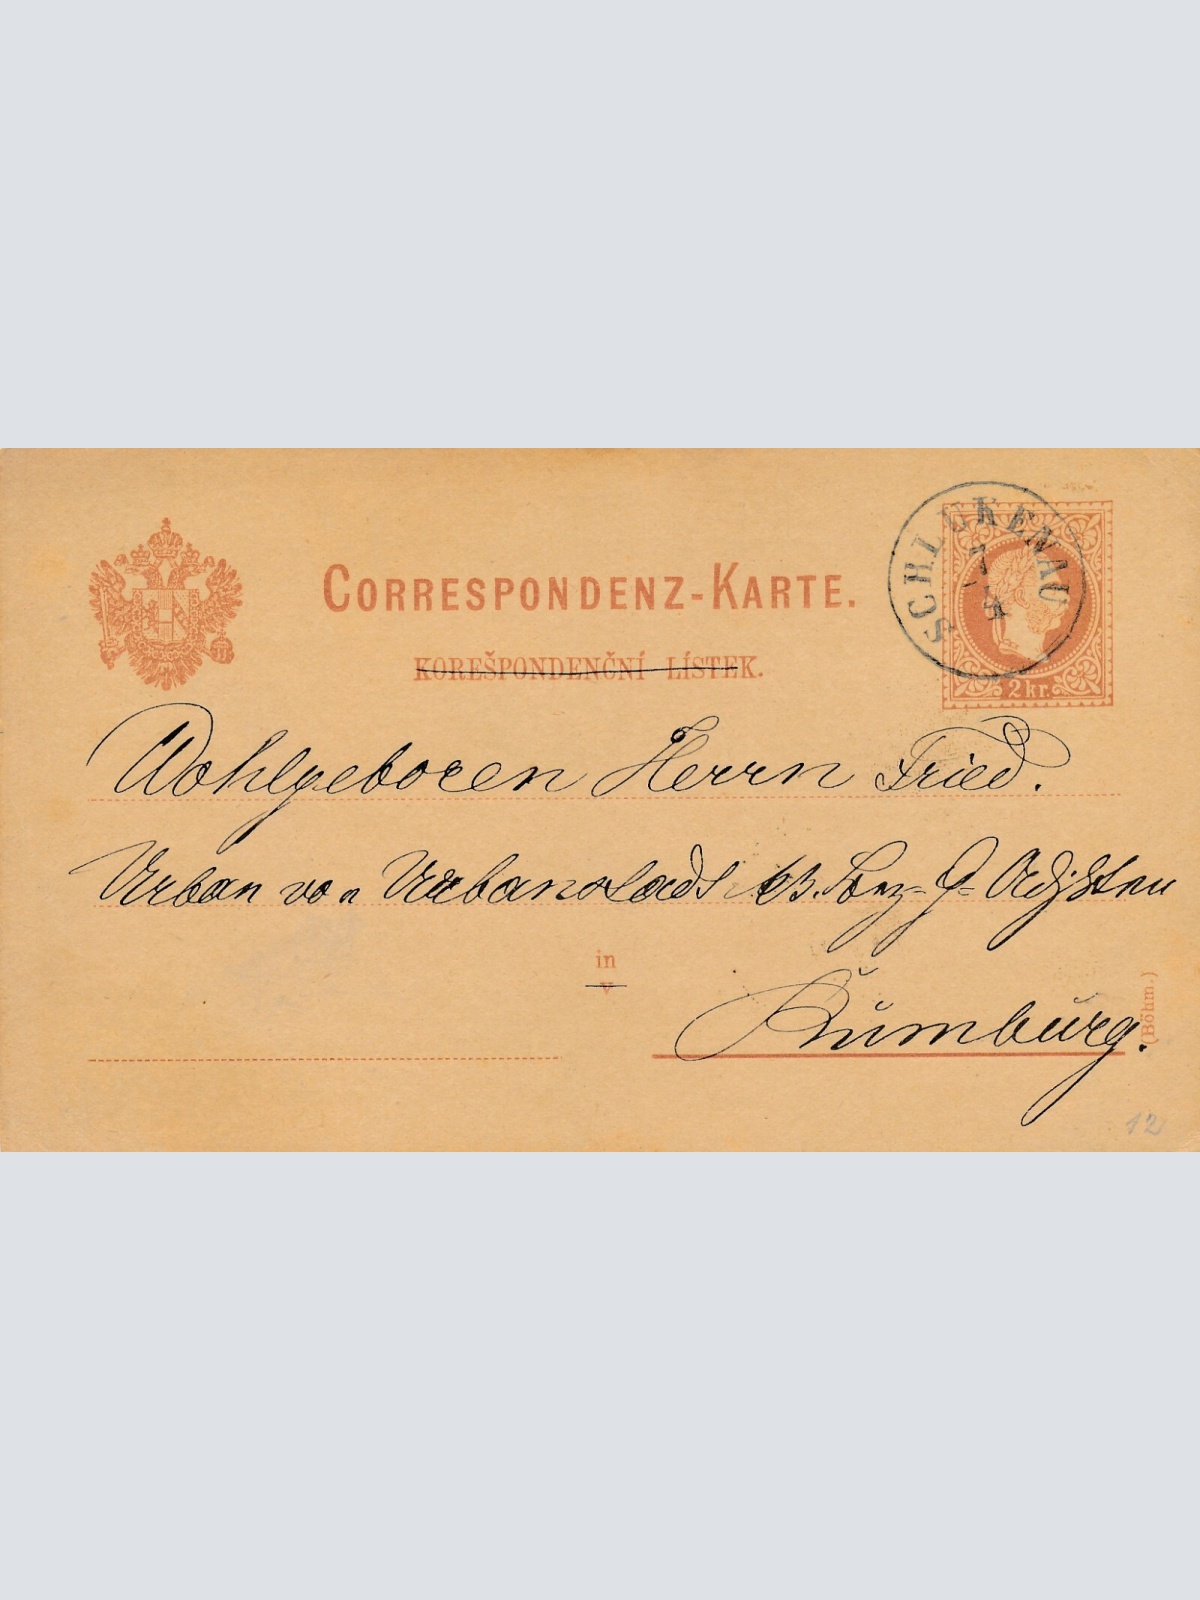 SCHLUKENAU
7
CORRESPONDENZ-KARTE.
KOREŠPONDENČNÍ LÍSTEK.
2 kr.
Wohlgeboren Herrn Fried.
Urban von Urbanstadt
in
v
Rumburg.
(Böhm.)
12